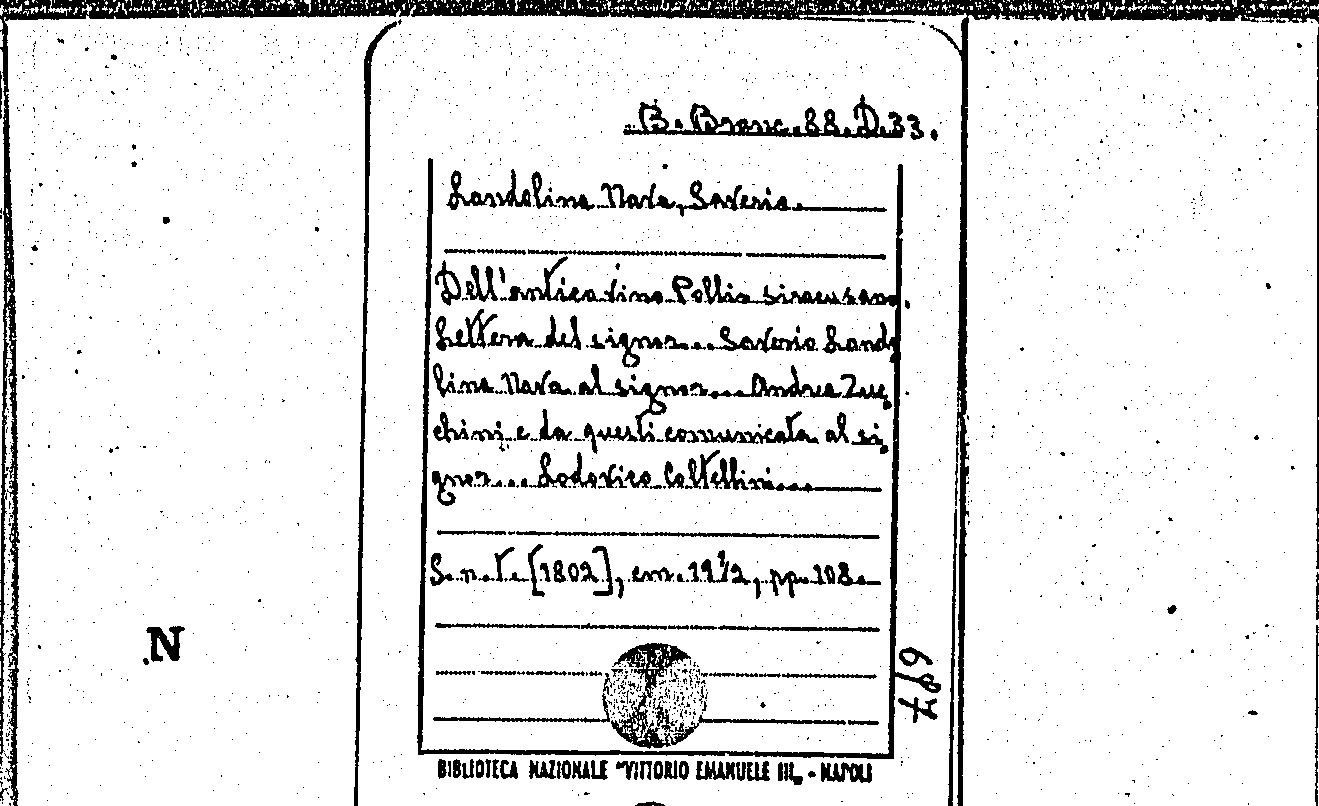 B. Branc. 88. D. 33.
Landolina Nava, Saverio.
Dell'antico vino Pollio siracusano.
Lettera del signor... Saverio Lando
lina Nava al signor... Andrea Zuc
chini e da questi comunicata al si
gnor... Lodovico Coltellini...
S. n. t. [1802], cm. 19½, pp. 108.
N
6/87
BIBLIOTECA NAZIONALE "VITTORIO EMANUELE III„ - NAPOLI